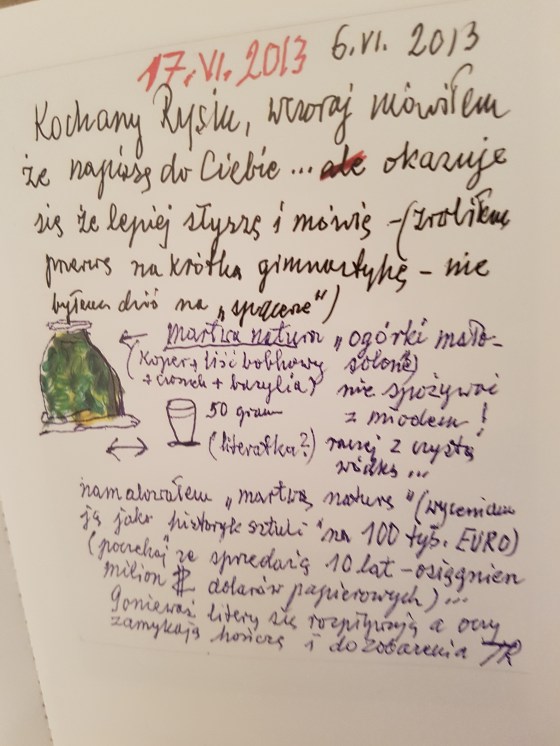 17.VI.2013 6.VI. 2013
Kochany Rysiu, wczoraj mówiłem
że napiszę do Ciebie ... ale okazuje
się że lepiej słyszę i mówię – (zrobiłem
przerwę na krótką gimnastykę – nie
byłem dziś na „spacerze")
martwa natura „ogórki mało-
(koper + liść bobkowy solone)
+ czosnek + bazylia) nie spożywać
50 gram z miodem!
(literatka?) raczej z czystą
wódką ...
namalowałem „martwą naturę" (wyceniam
ją jako historyk sztuki na 100 tyś. EURO)
(poczekaj ze sprzedażą 10 lat – osiągnien
milion $ dolarów papierowych) ...
ponieważ litery się rozpływają a oczy
zamykają kończę i do zobaczenia TR